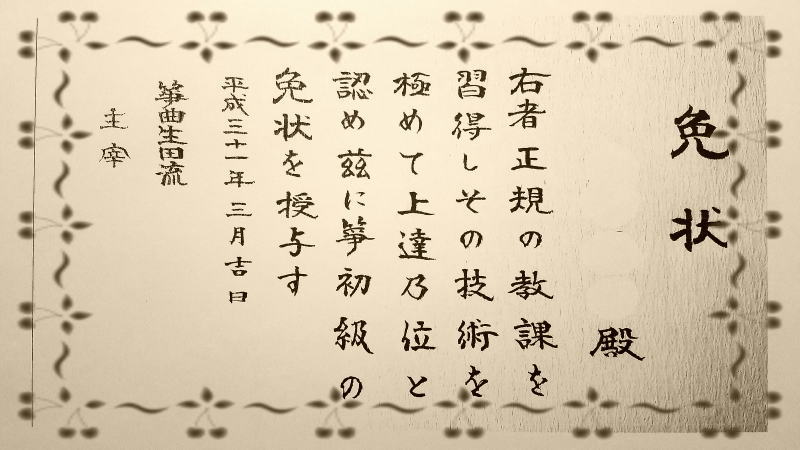 免状
殿
右者正規の教課を
習得しその技術を
極めて上達乃位と
認め茲に箏初級の
免状を授与す
平成三十一年三月吉日
箏曲生田流
主宰